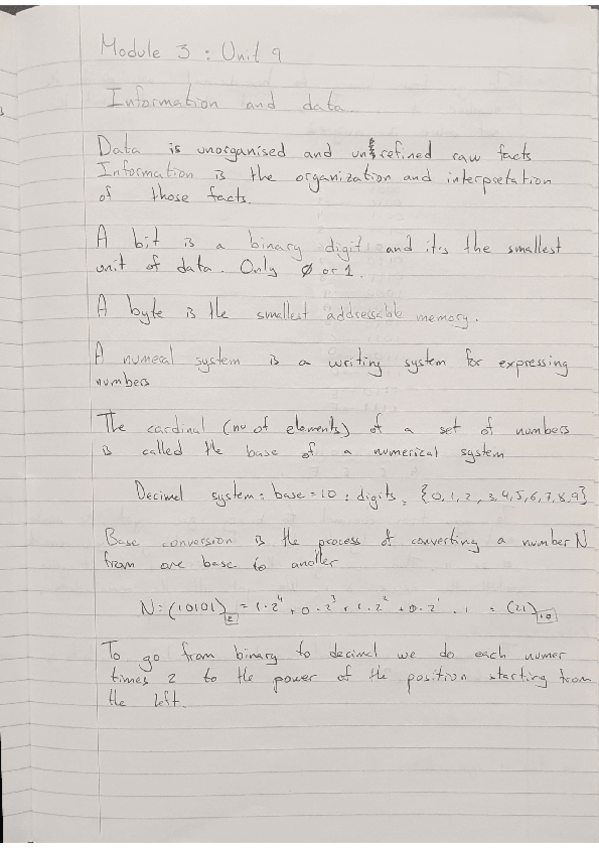 Module 3 : Unit 9
Information and data
Data is unorganised and unrefined raw facts
Information is the organization and interpretation
of those facts.
A bit is a binary digit and it's the smallest
unit of data. Only 0 or 1.
A byte is the smallest addressable memory.
A numeral system is a writing system for expressing
numbers
The cardinal (nu of elements) of a set of numbers
is called the base of a numerical system
Decimal system: base = 10 : digits, {0,1,2,3,4,5,6,7,8,9}
Base conversion is the process of converting a number N
from one base to another
N: (10101)₂ = 1·2⁴ + 0·2³ + 1·2² + 0·2¹ + 1 = (21)₁₀
To go from binary to decimal we do each numer
times 2 to the power of the position starting from
the left.